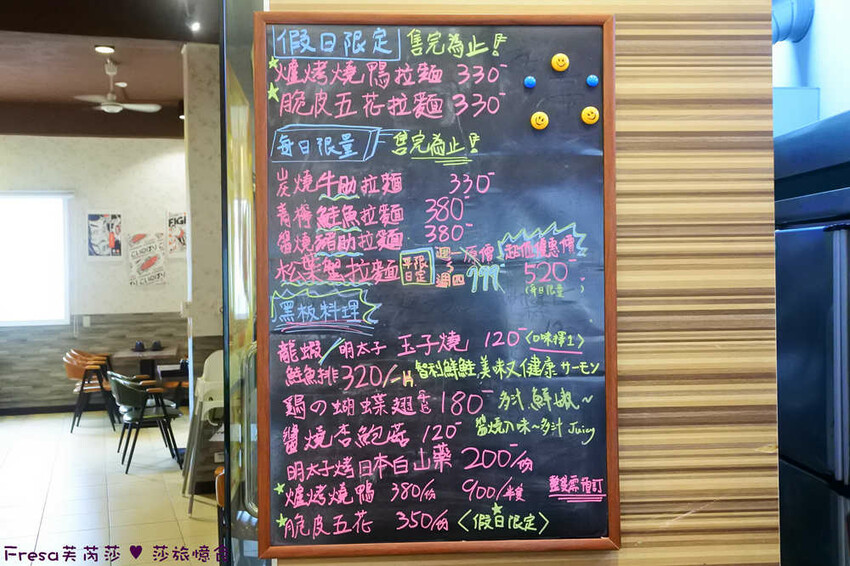 假日限定 售完為止!!
爐烤燒鴨拉麵 330-
脆皮五花拉麵 330-
每日限量 售完為止!!
炭燒牛肋拉麵 330-
青檸鮭魚拉麵 380-
醬燒豬肋拉麵 380-
松葉蟹拉麵 平日限定 週一~週四 原價999 超值優惠價 520- (每日限量)
黑板料理
龍蝦/明太子 玉子燒 120- <口味擇1>
鮭魚排 320/一片 智利鮮鮭 美味又健康 サーモン
鍋の蝴蝶翅 180- 多汁鮮嫩~
醬燒杏鮑菇 120- 醬燒入味~多汁 Juicy
明太子烤日本白山藥 200/份
爐烤燒鴨 380/份 900/半隻 整隻需預訂
脆皮五花 350/份 <假日限定>
FIGH
Fresa芙芮莎 ♥ 莎旅憶食